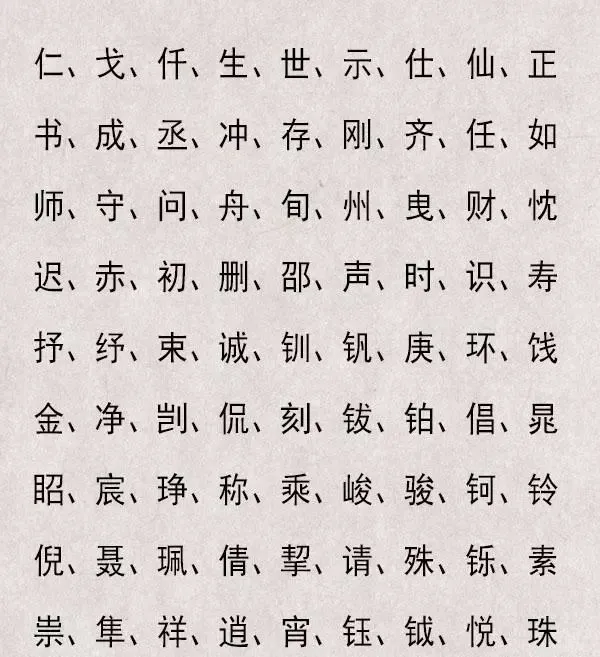 仁、戈、仟、生、世、示、仕、仙、正
书、成、丞、冲、存、刚、齐、任、如
师、守、问、舟、旬、州、曳、财、忱
迟、赤、初、删、邵、声、时、识、寿
抒、纾、束、诚、钏、钒、庚、环、饯
金、净、剀、侃、刻、钹、铂、倡、晁
眧、宸、琤、称、乘、峻、骏、钶、铃
倪、聂、珮、倩、挈、请、殊、铄、素
祟、隼、祥、逍、宵、钰、钺、悦、珠